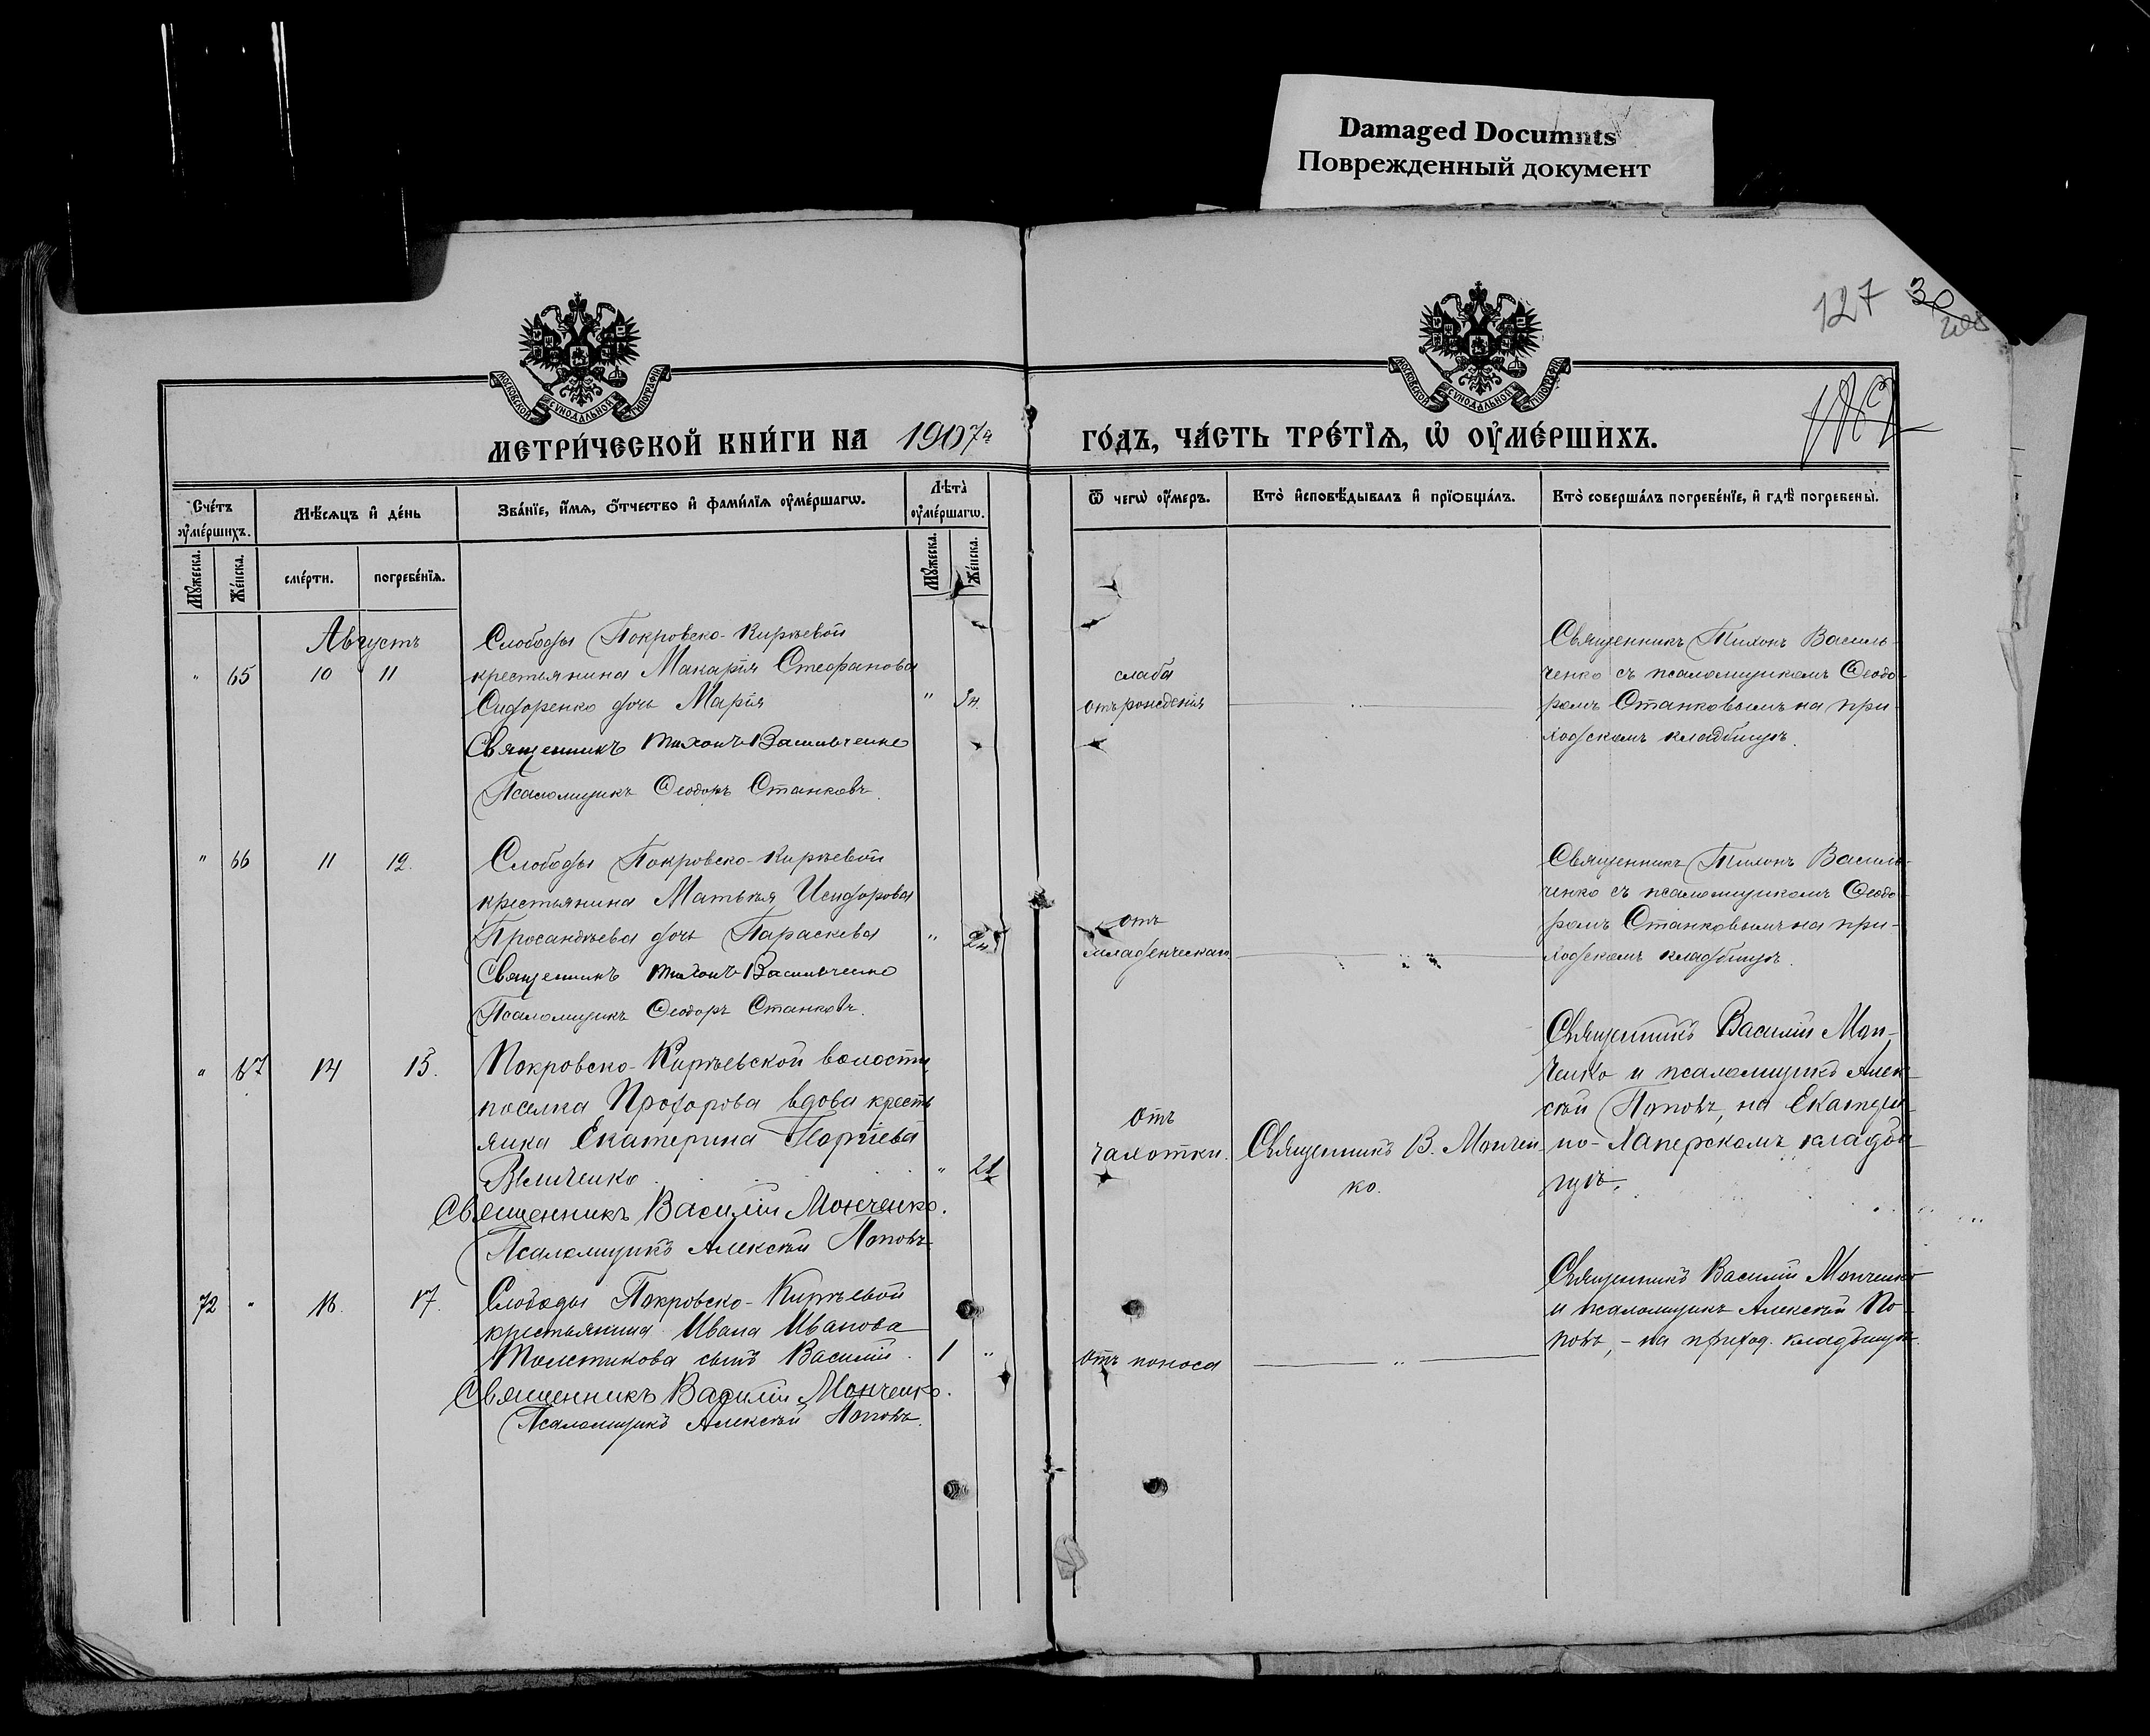 Damaged Documnts
Поврежденный документ
127
МОСКОВСКОЙ СѴНОДАЛЬНОЙ ТИПОГРАФІИ
МОСКОВСКОЙ СѴНОДАЛЬНОЙ ТИПОГРАФІИ
МЕТРИ́ЧЕСКОЙ КНИ́ГИ НА 1907й ГО́ДЪ, ЧА́СТЬ ТРЕ́ТІѦ, Ѡ ОУ҆МЕ́РШИХЪ.
Сче́тъ оу҆ме́ршихъ.
Мѣ́сѧцъ и҆ де́нь
Зва́нїе, и҆́мѧ, ѻ҆́тчество и҆ фами́лїѧ оу҆ме́ршагѡ.
Лѣ́та̀ оу҆ме́ршагѡ.
Ѿ чегѡ̀ оу҆́меръ.
Кто̀ и҆сповѣ́дывалъ и҆ прїѡбща́лъ.
Кто̀ соверша́лъ погребе́нїе, и҆ гдѣ̀ погребены̀.
Мꙋ́жеска.
Же́нска.
сме́рти.
погребе́нїѧ.
Мꙋ́жеска.
Же́нска.
Августъ
" 65 10 11
Слободы Покровско-Кирѣевой
крестьянина Макарія Стефанова
Сидоренко дочь Марія "
Священникъ Тихонъ Васильченко
Псаломщикъ Ѳеодоръ Станковъ
слаба
отъ рожденія
Священникъ Тихонъ Василь-
ченко съ псаломщикомъ Ѳеодо-
ромъ Станковымъ на при-
ходскомъ кладбищѣ.
" 66 11 12.
Слободы Покровско-Кирѣевой
крестьянина Матвѣя Исидорова
дочь Параскева "
Священникъ Тихонъ Васильченко
Псаломщикъ Ѳеодоръ Станковъ.
отъ
младенческой
Священникъ Тихонъ Василь-
ченко съ псаломщикомъ Ѳеодо-
ромъ Станковымъ на при-
ходскомъ кладбищѣ.
" 67 14 15.
Покровско-Кирѣевской волости
поселка Прохорова вдова кресть
янка Екатерина
" 21
Священникъ Василій Монченко.
Псаломщикъ Алексѣй Поповъ
отъ
чахотки.
Священникъ В. Мончен
ко.
Священникъ Василій Мон-
ченко и псаломщикъ Алек-
сѣй Поповъ, на Екатери-
но-Хаперскомъ кладби-
щѣ.
72 " 16. 17.
Слободы Покровско-Кирѣевой
крестьянина Ивана Иванова
Толстикова сынъ Василій. 1 "
Священникъ Василій Монченко.
Псаломщикъ Алексѣй Поповъ.
отъ поноса
Священникъ Василій Монченко
и псаломщикъ Алексѣй По-
повъ, - на приход. кладбищѣ.